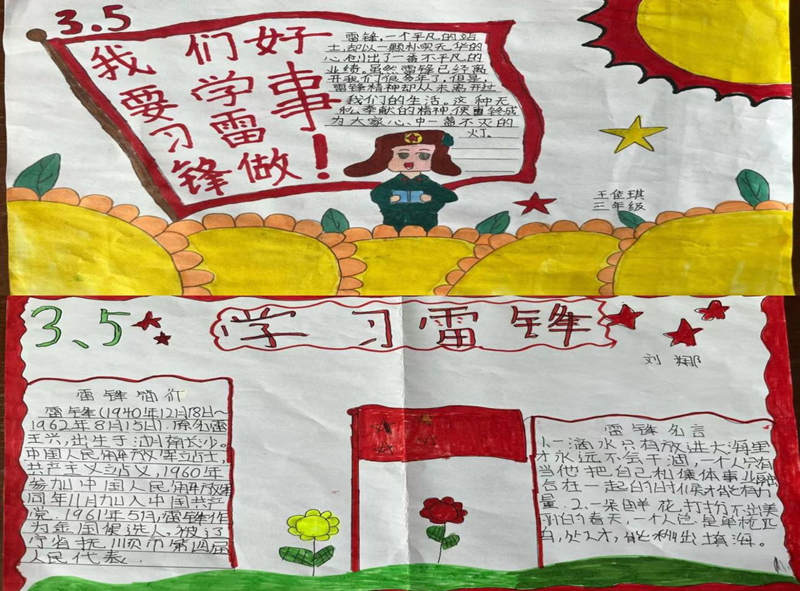 3.5
我们好
要学事
习雷
锋做！
雷锋,一个平凡的战
士,却以一颗朴实无华的
心,创出了一番不平凡的
业绩。虽然雷锋已经离
开我们很多年,但是,
雷锋精神却从未离开过
我们的生活。这种无
私奉献的精神,使雷锋成
为大家心中一盏不灭的
灯.
王佳琪
三年级
3.5
学习雷锋
刘娜
雷锋简介
雷锋(1940年12月18日~
1962年8月15日)原名雷
正兴,出生于湖南长沙。
中国人民解放军战士,
共产主义战士,1960年
参加中国人民解放军
同年11月加入中国共产
党.1961年5月,雷锋作
为候选人,被辽
宁省抚顺市第四届
人民代表.
雷锋名言
1.一滴水只有放进大海里
才永远不会干涸,一个人只有
当他把自己和集体事业融
合在一起的时候才能有力
量.2.一朵鲜花打扮不出美
丽的春天,一个人总是单枪匹
才能移山填海。